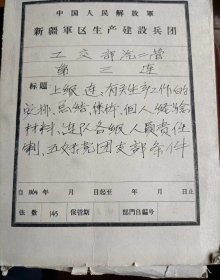 中国人民解放軍
新疆軍区生产建設兵团
工交部汽二营
第三连
标题 上级连、有关生产工作的
安排、总结、条件、个人
材料、连队各级人员责任
制、五好党团支部条件
自1964年 月 日起至 年 月 日止
张数 145 保管期 部門自編号